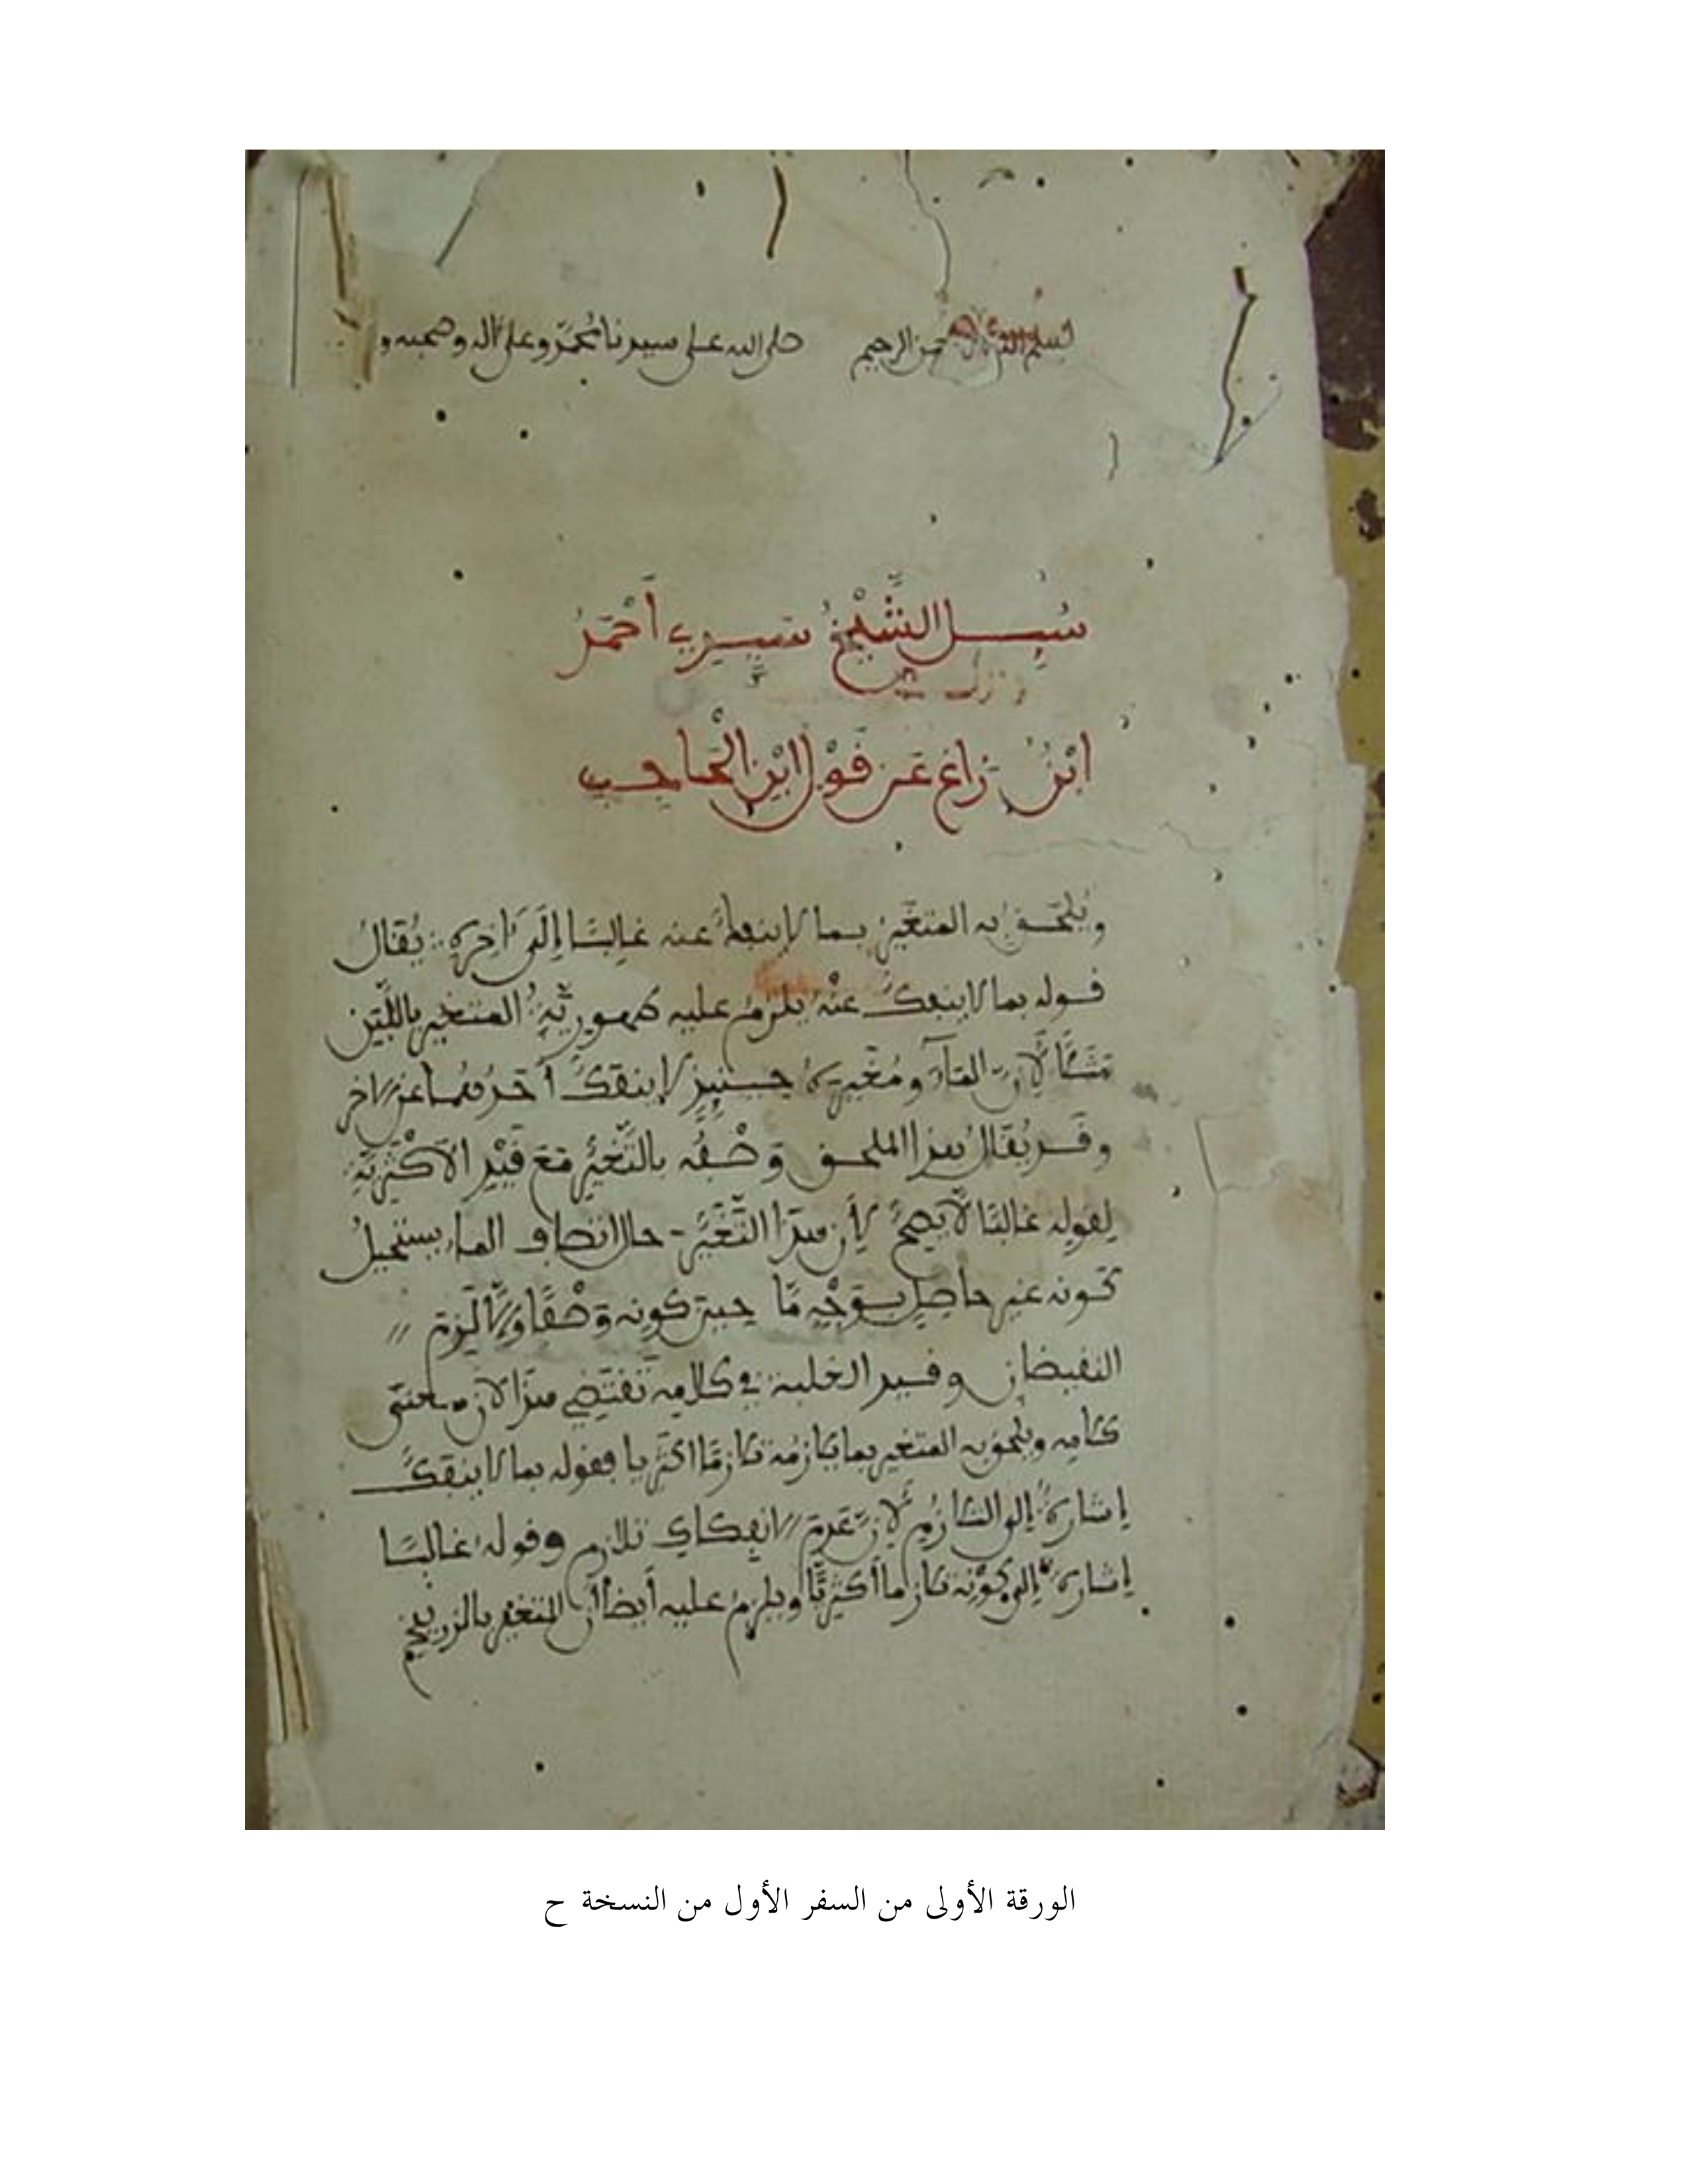 بسم الله الرحمن الرحيم صلى الله على سيدنا محمد وعلى آله وصحبه و
سُئِل الشَّيْخُ سَيِّدِي أَحْمَدُ
ابْنُ زاغ عَن قَوْل ابْنِ الْحَاجِب
ويُلْحَق به المتغَيِّرُ بما لا ينفكُّ عنه غَالِبًا إِلَى آخِرِهِ يُقَالُ
قوله بما لا ينفكُّ عنْهُ يلزمُ عليه طهوريَّةُ المتغير باللَّبَنِ
مَثَلًا لِأَنَّ المَاءَ ومُغَيِّرَهُ حينئذ لا ينفكُّ أحدُهما عن الآخر
وقد يُقَالُ هذا الملحق وَصْفُه بالتَّغَيُّرِ مَعَ قَيْدِ الأكْثَرِيَّةِ
لقوله غالبًا لا يصحُّ لأن هذا التَّغَيُّرَ حال اتصاف الماء يستحيلُ
كونه غير حاصِلٍ بوَجْهٍ مَّا حين كونه وَصْفًا وإلَّا لَزِمَ
النقيضان وقيد الغلبة في كلامه تقتضي هذا لأن معنى
كلامه ويلحق به المتغير بما يلازمه تلازُمًا أكثريا فقوله بما لا ينفكُّ
إشارةٌ إلى التلازُمِ لأنَّ عَدمَ الانفكاكِ تلازم وقوله غالبًا
إشارة إلى كوْنِه تلازما أكثريًّا ويلزمُ عليه أيضا أن المتغير بالزرنيخ
الورقة الأولى من السفر الأول من النسخة ح